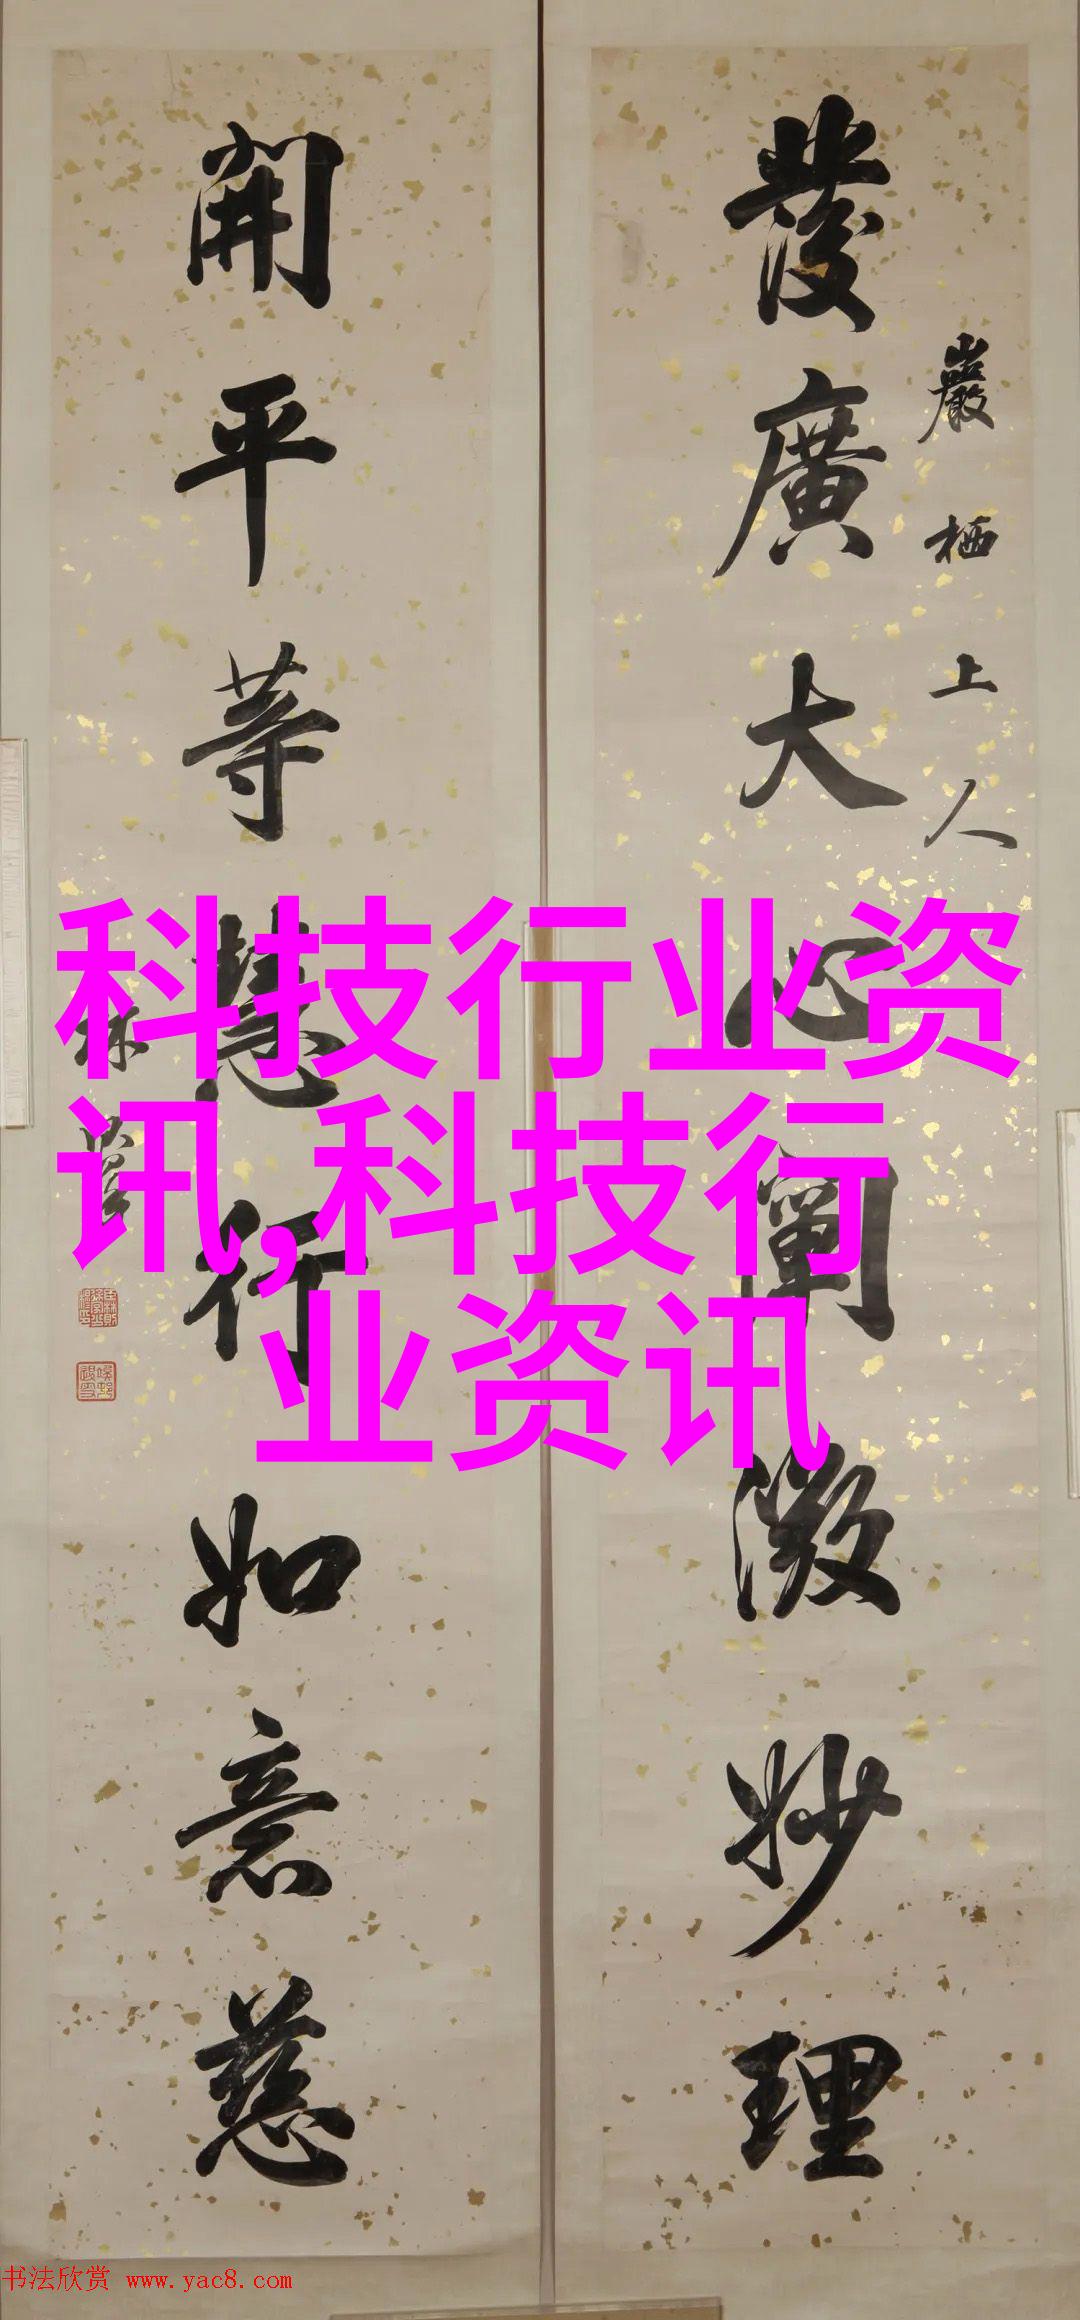 發廣大心闡微妙理
巖栖上人
開平等慧行如意慈
林
科技行业资
讯,科技行
业资讯
书法欣赏 www.yac8.com